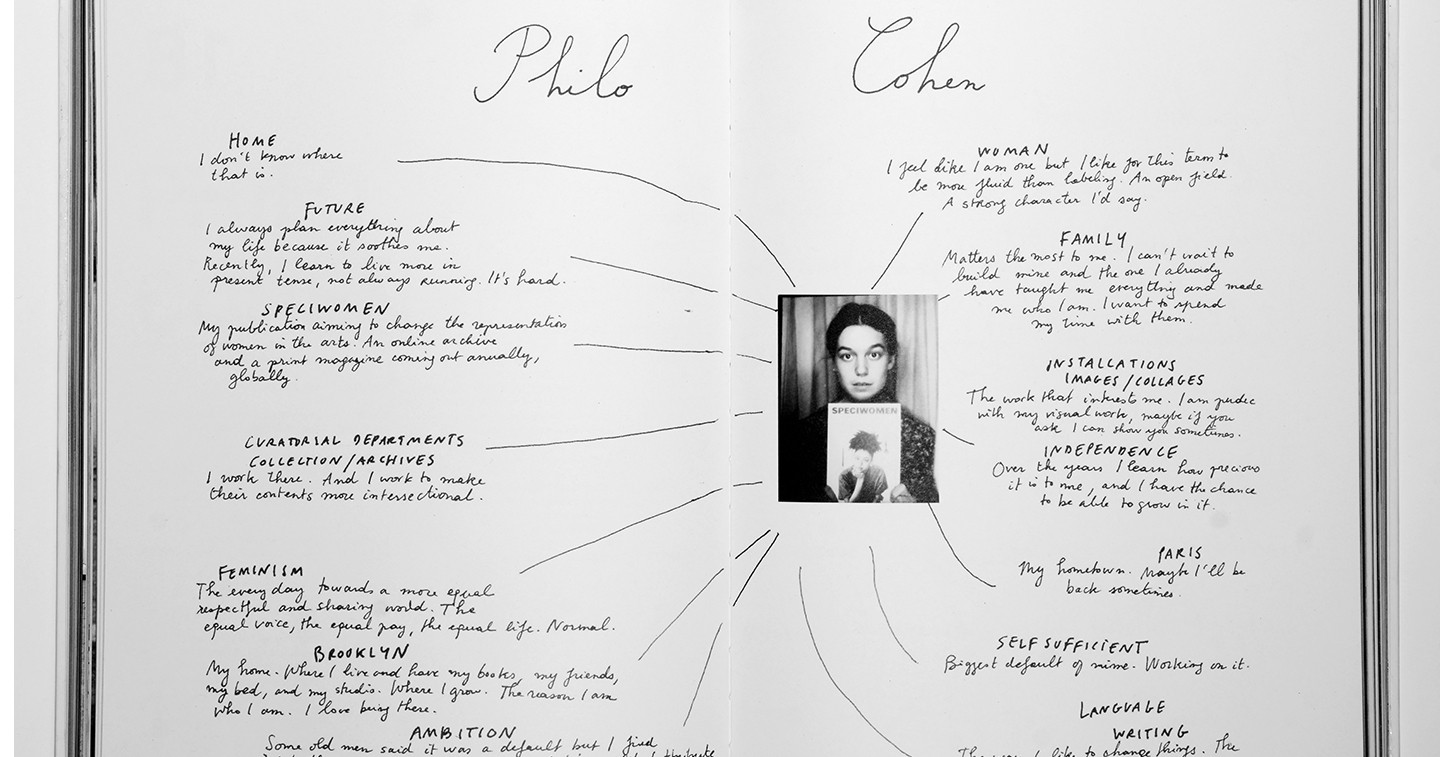 Philo Cohen
HOME
I don't know where
that is.
FUTURE
I always plan everything about
my life because it soothes me.
Recently, I learn to live more in
present tense, not always running. It's hard.
SPECIWOMEN
My publication aiming to change the representation
of women in the arts. An online archive
and a print magazine coming out annually,
globally.
CURATORIAL DEPARTMENTS
COLLECTION/ARCHIVES
I work there. And I work to make
their contents more intersectional.
FEMINISM
The every day towards a more equal
respectful and sharing world. The
equal voice, the equal pay, the equal life. Normal.
BROOKLYN
My home. Where I live and have my books, my friends,
my bed, and my studio. Where I grow. The reason I am
who I am. I love being there.
AMBITION
Some old men said it was a default but I
WOMAN
I feel like I am one but I like for this term to
be more fluid than labeling. An open field.
A strong character I'd say.
FAMILY
Matters the most to me. I can't wait to
build mine and the one I already
have taught me everything and made
me who I am. I want to spend
my time with them.
SPECIWOMEN
INSTALLATIONS
IMAGES/COLLAGES
The work that interests me. I am pudic
with my visual work, maybe if you
ask I can show you sometimes.
INDEPENDENCE
Over the years I learn how precious
it is to me, and I have the chance
to be able to grow in it.
PARIS
My hometown. Maybe I'll be
back sometimes.
SELF SUFFICIENT
Biggest default of mine. Working on it.
LANGUAGE
WRITING
I like to change things. The